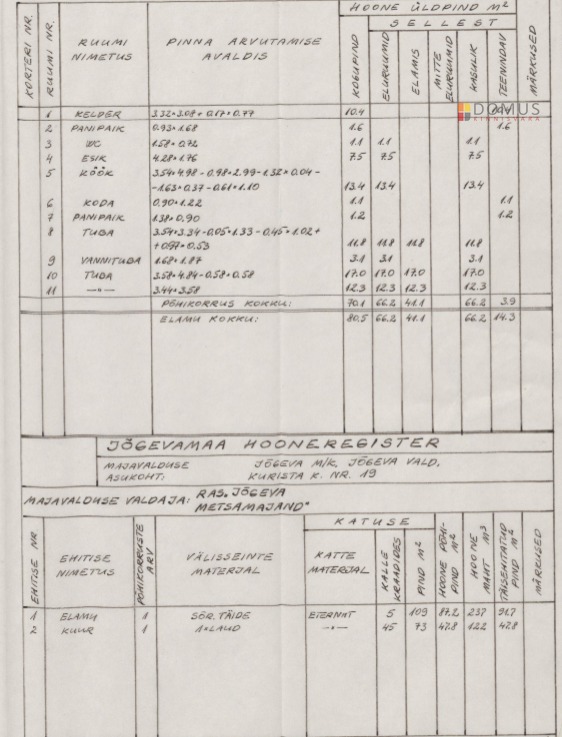 HOONE ÜLDPIND M²
SELLEST
KORTERI NR.
RUUMI NR.
RUUMI NIMETUS
PINNA ARVUTAMISE AVALDIS
KOGUPIND
ELURUUMID
ELAMIS
MITTE ELURUUMID
KASULIK
TEENINDAV
MÄRKUSED
1 KELDER 3.32×3.08+0.17×0.77 10.4
DOMUS
KINNISVARA
2 PANIPAIK 0.93×1.68 1.6 1.6
3 WC 1.58×0.72 1.1 1.1 1.1
4 ESIK 4.28×1.76 7.5 7.5 7.5
5 KÖÖK 3.54×4.98-0.98×2.99-1.32×0.04-
-1.63×0.37-0.61×1.10 13.4 13.4 13.4
6 KODA 0.90×1.22 1.1 1.1
7 PANIPAIK 1.38×0.90 1.2 1.2
8 TUBA 3.54×3.34-0.05×1.33-0.45×1.02+
+0.97×0.53 11.8 11.8 11.8 11.8
9 VANNITUBA 1.68×1.87 3.1 3.1 3.1
10 TUBA 3.58×4.84-0.58×0.58 17.0 17.0 17.0 17.0
11 —"— 3.44×3.58 12.3 12.3 12.3 12.3
PÕHIKORRUS KOKKU: 70.1 66.2 41.1 66.2 3.9
ELAMU KOKKU: 80.5 66.2 41.1 66.2 14.3
JÕGEVAMAA HOONEREGISTER
MAJAVALDUSE ASUKOHT:
JÕGEVA M/K, JÕGEVA VALD,
KURISTA K. NR. 19
MAJAVALDUSE VALDAJA: RAS„JÕGEVA
METSAMAJAND"
KATUSE
EHITISE NR
EHITISE NIMETUS
PÕHIKORRUSTE ARV
VÄLISSEINTE MATERJAL
KATTE MATERJAL
KALLE KRAADIDES
PIND M²
HOONE PÕHI-PIND M²
HOONE MAHT M³
TÄISEHITATUD PIND M²
MÄRKUSED
1 ELAMU 1 SÕR. TÄIDE ETERNIIT 5 109 87.2 237 91.7
2 KUUR 1 1×LAUD —"— 45 73 47.8 122 47.8